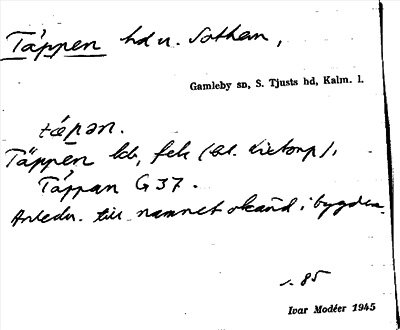 Täppen hd u. Sothem,
Gamleby sn, S. Tjusts hd, Kalm. l.
tæpən.
Täppen ldr, fek (bl. Kietorp),
Täppan G 37.
Anledn. till namnet okänd i bygden.
s. 85
Ivar Modéer 1945